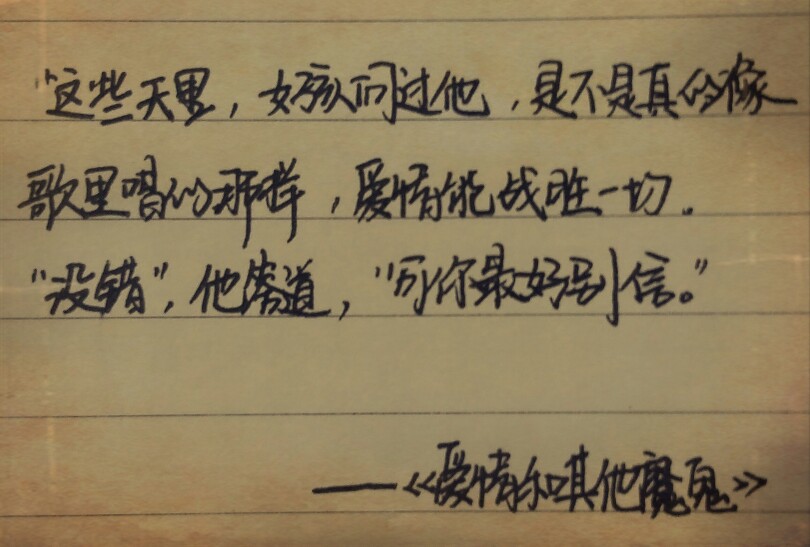 “这些天里，女孩问过他，是不是真的像
歌里唱的那样，爱情能战胜一切。
“没错”，他答道，“可你最好别信。”
——《爱情和其他魔鬼》